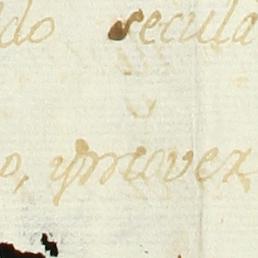 do secula
o, ymovex